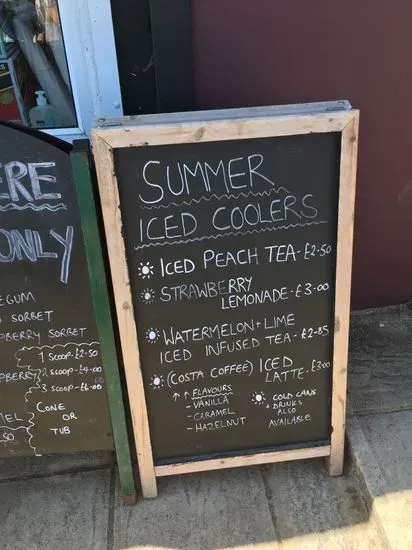 ERE
ONLY
EGUM
SORBET
PBERRY SORBET
1 SCOOP-£2.50
2 SCOOP-£4.00
3 SCOOP-£6.00
CONE
OR
TUB
SUMMER
ICED COOLERS
ICED PEACH TEA-£2.50
STRAWBERRY
LEMONADE-£3.00
WATERMELON + LIME
ICED INFUSED TEA-£2.85
(COSTA COFFEE) ICED
LATTE-£3.00
↑ ↑ FLAVOURS
- VANILLA
- CARAMEL
- HAZELNUT
COLD CANS
+ DRINKS
ALSO
AVAILABLE